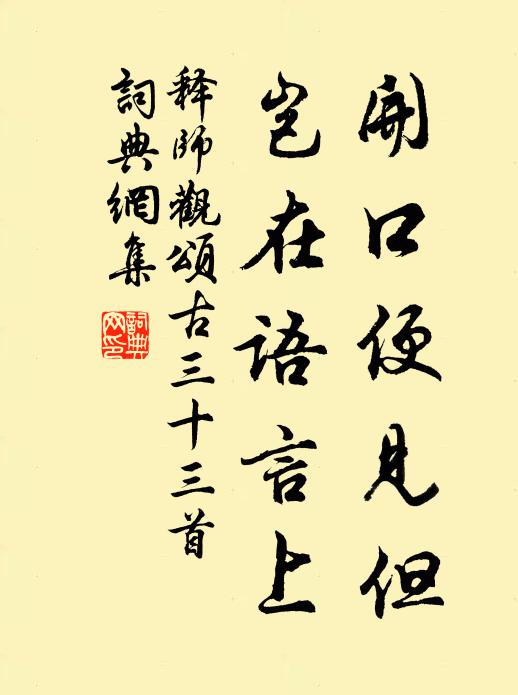 開口便見但
豈在語言上
释師觀頌古三十三首
詞典網集
詞典網印